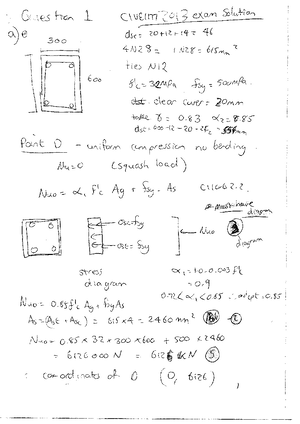 Question 1   CIVENM 2013 exam Solution
a) 
300
600
dsc = 20+12+14 = 46
4 N28 = 1 N28 = 615mm²
ties N12
f'c = 32MPa   fsy = 500MPa.
clear cover = 20mm
take γ = 0.83   α2 = 0.85
dst = 600-12-20-
Point D - uniform compression no bending.
Mu=0   (squash load)
Nuo = α1 f'c Ag + fsy . As
must have diagram
σsc=fsy
σst=fsy
Nuo
diagram
stress diagram
α1 = 1.0-0.003 f'c
= 0.9
0.72 < α1 < 0.85 ∴ adopt 0.85
Nuo = 0.85 f'c Ag + fsy As
As = (Ast + Asc) = 615×4 = 2460 mm²
Nuo = 0.85 × 32 × 300×600 + 500 × 2460
= 6126 000 N = 6126 kN
∴ coordinates of D   (0, 6126)